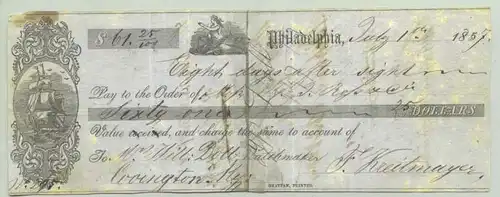 $ 61. 25/100 Philadelphia, July 1st 1857.
Eight days after sight
Pay to the Order of
Sixty one 25 DOLLARS
Value received, and charge the same to account of
To Mr. Will: Watchmaker F. Kreitmayer.
No Covington Ky:
BEATTAN, PRINTER.